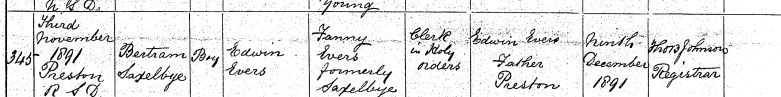 N.S.D. Young
345
Third
November
1891
Preston
R S D
Bertram
Saxelbye
Boy
Edwin
Evers
Fanny
Evers
formerly
Saxelbye
Clerk
in Holy
orders
Edwin Evers
Father
Preston
Ninth
December
1891
Thos Johnson
Registrar